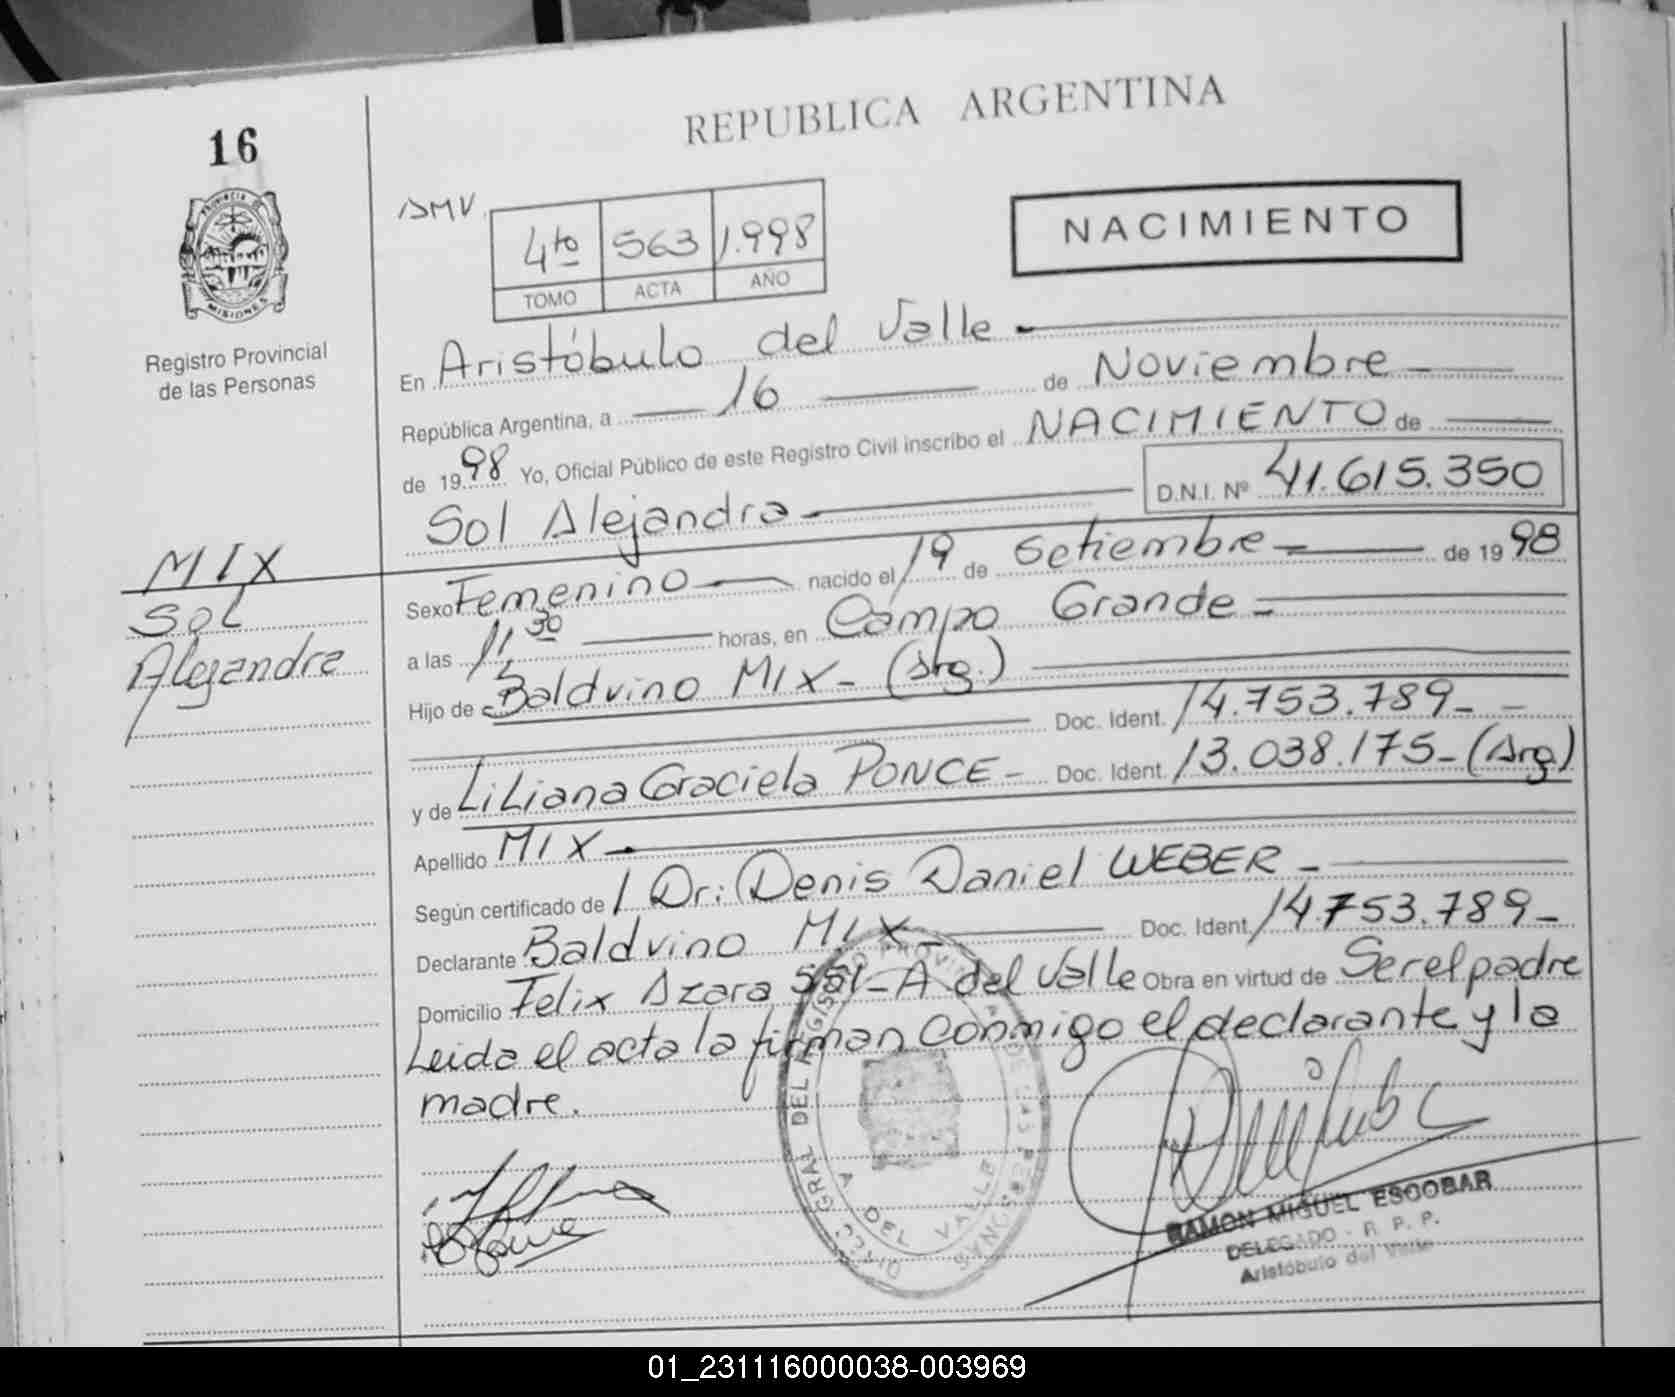 16
REPUBLICA ARGENTINA
PROVINCIA DE
MISIONES
Registro Provincial
de las Personas
4to 563 1.998
TOMO ACTA AÑO
NACIMIENTO
En Aristóbulo del Valle
República Argentina, a 16 de Noviembre
de 1998 Yo, Oficial Público de este Registro Civil inscribo el NACIMIENTO de
D.N.I. Nº 41.615.350
Sol Alejandra
MIX
Sol
Alejandra
Sexo Femenino nacido el 19 de Setiembre de 1998
a las 11,30 horas, en Campo Grande
Hijo de Baldvino MIX - (Arg.)
Doc. Ident. 14.753.789
y de Liliana Graciela PONCE - Doc. Ident. 13.038.175 - (Arg)
Apellido MIX
Según certificado de Dr: Denis Daniel WEBER
Declarante Baldvino MIX Doc. Ident. 14.753.789
Domicilio Felix Azara 551 - A del Valle Obra en virtud de Ser el padre
Leida el acta la firman conmigo el declarante y la
madre.
DIREC. GRAL DEL REGISTRO PROVINCIAL DE LAS PERSONAS
A DEL VALLE
RAMON MIGUEL ESCOBAR
DELEGADO - R. P. P.
Aristóbulo del Valle
01_231116000038-003969